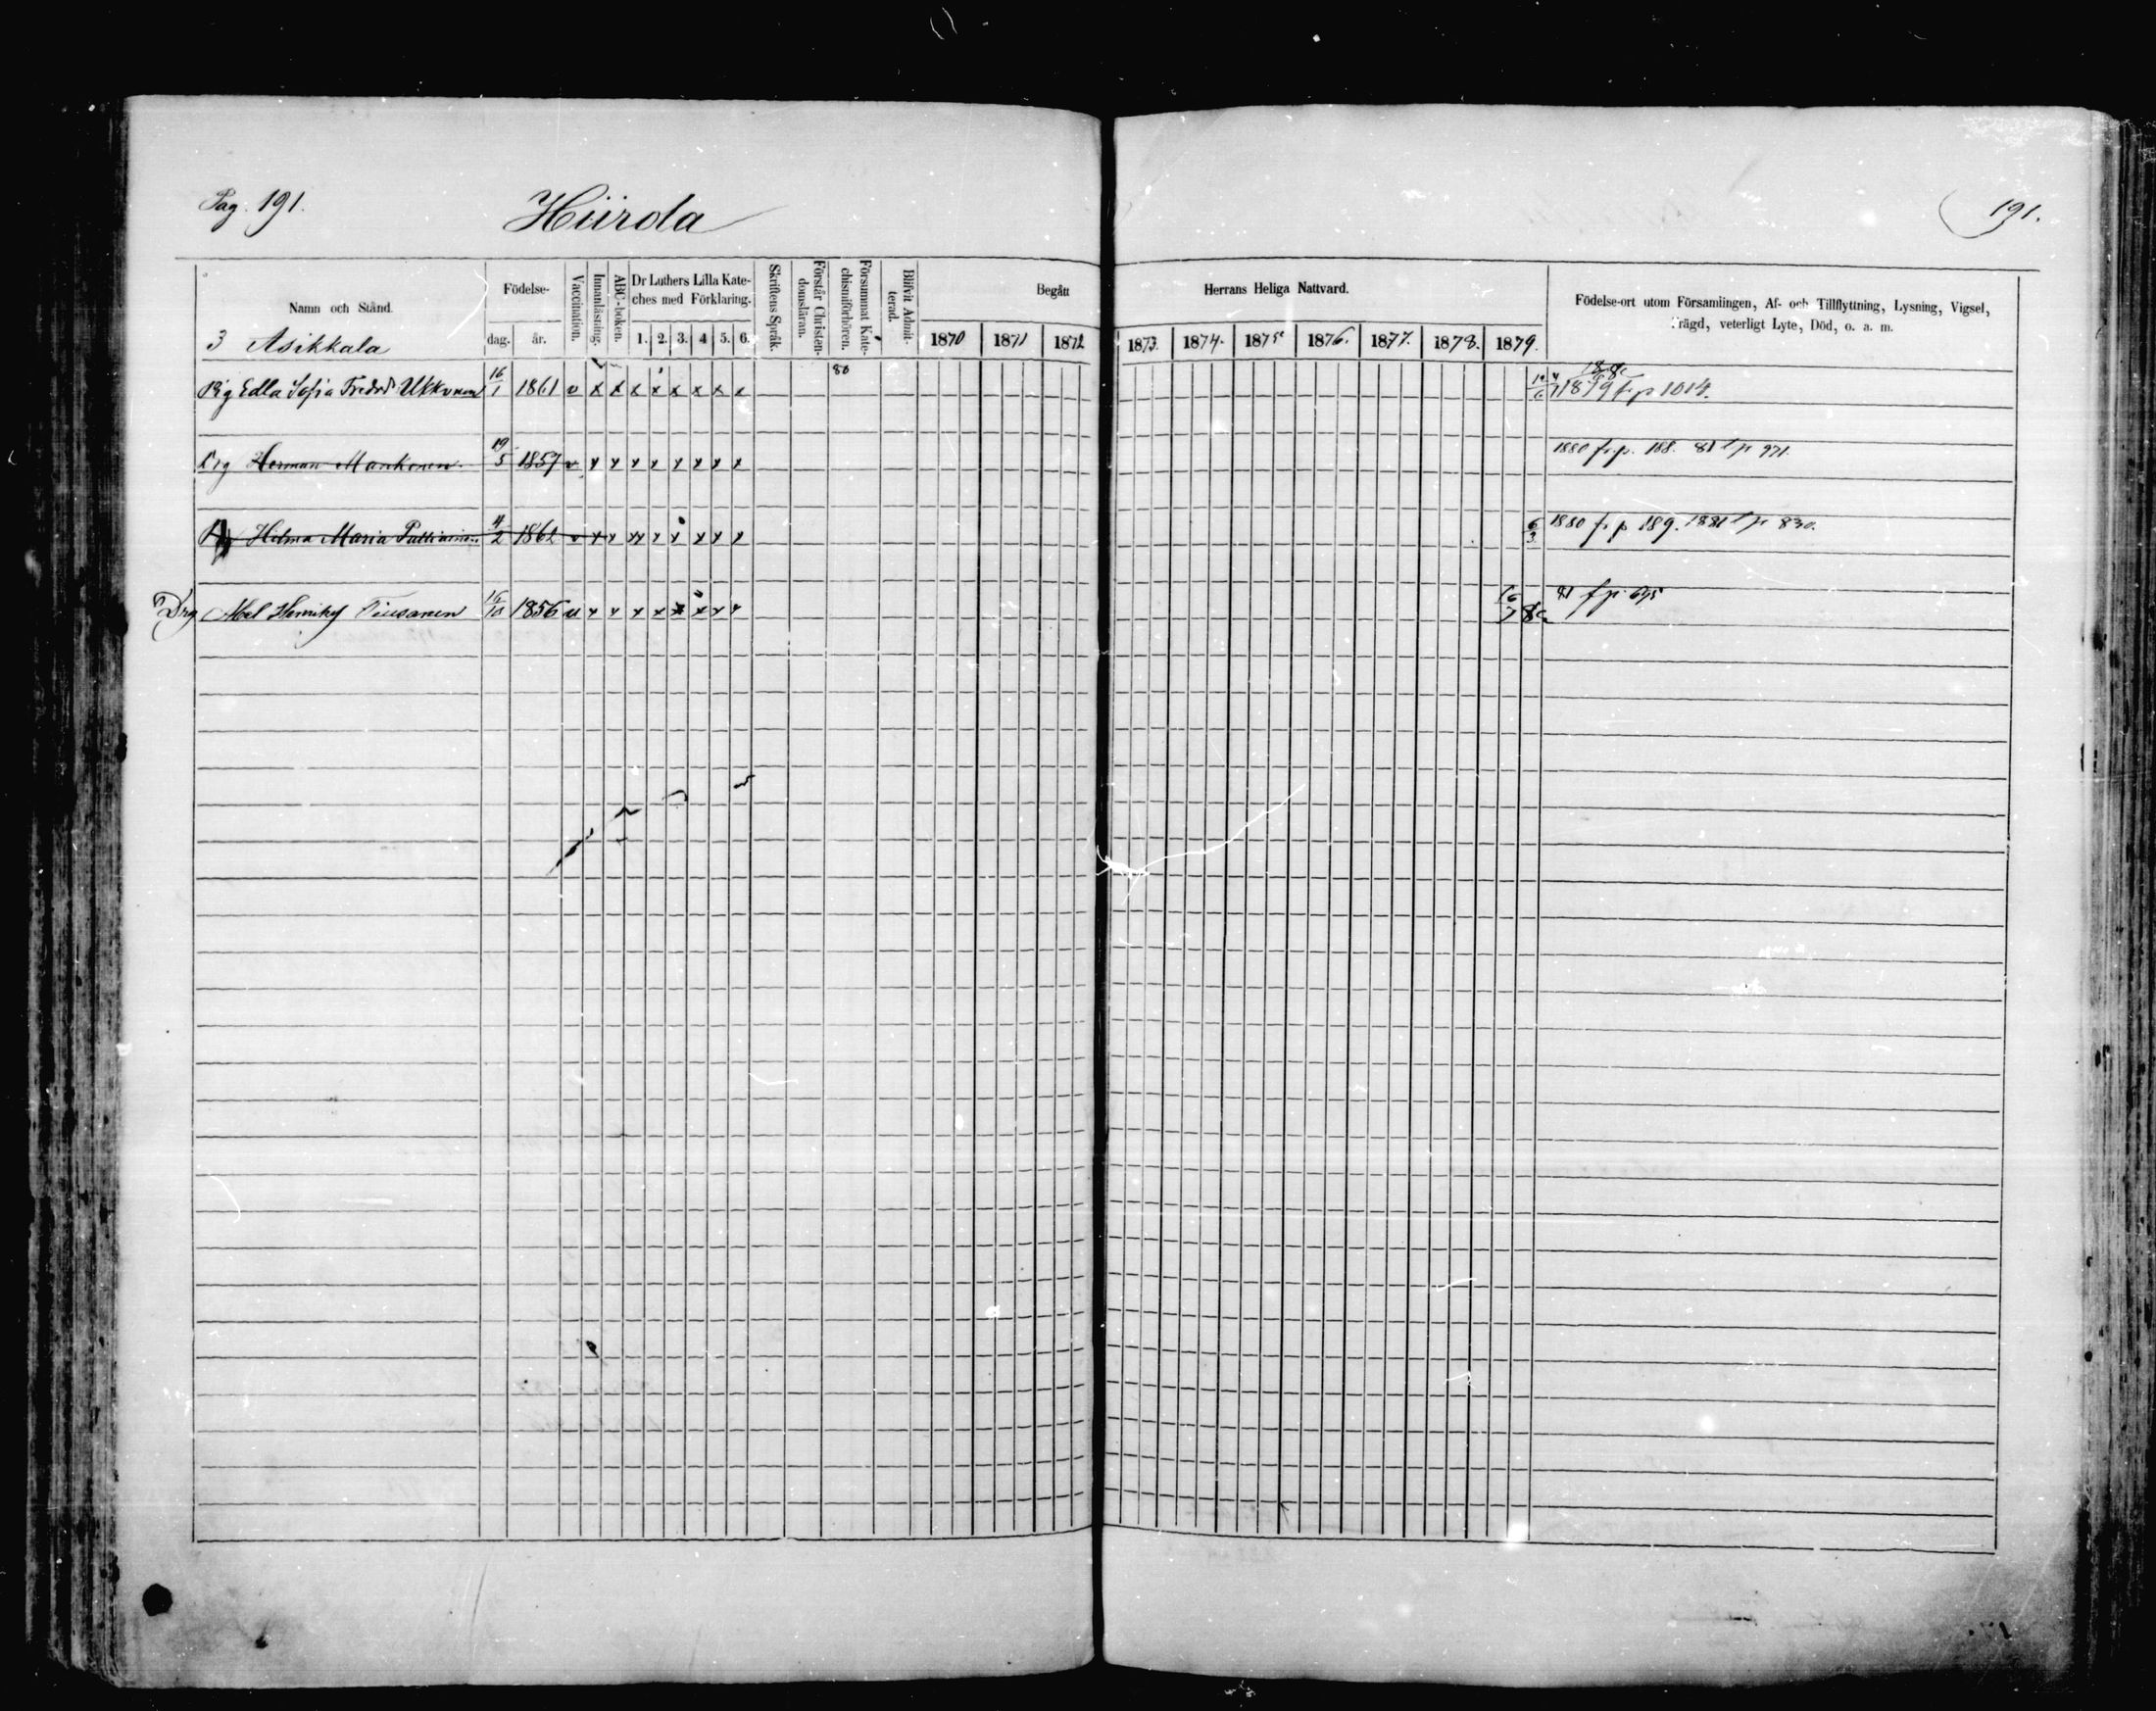 Pag. 191.
Hiirola
191.
Namn och Stånd.
Födelse-
dag.
år.
Vaccination.
Innanläsning.
ABC-boken.
Dr Luthers Lilla Kate-
ches med Förklaring.
1. 2. 3. 4 5. 6.
Skriftens Språk.
Förstår Christen-
domsläran.
Försummat Kate-
chismiförhören.
Blifvit Admit-
terad.
Begått Herrans Heliga Nattvard.
1870 1871 1872 1873. 1874. 1875 1876. 1877. 1878. 1879.
Födelse-ort utom Församlingen, Af- och Tillflyttning, Lysning, Vigsel,
Frägd, veterligt Lyte, Död, o. a. m.
3 Asikkala
Pig Edla Sofia Fredrd Ukkonen 16/1 1861 v x x x x x x x x 80 1879 fr p 1014.
Drg Herman Mankonen 19/5 1857 v x x x x x x x x 1880 fr. p. 188. 81 t p 971.
Hilma Maria 4/2 1862 v x x x x x x x x 6/3 1880 fr p 189. 1881 t p 830.
Drg Abel Henriks Tiusanen 16/10 1856 v x x x x x x x x 81 f p 695